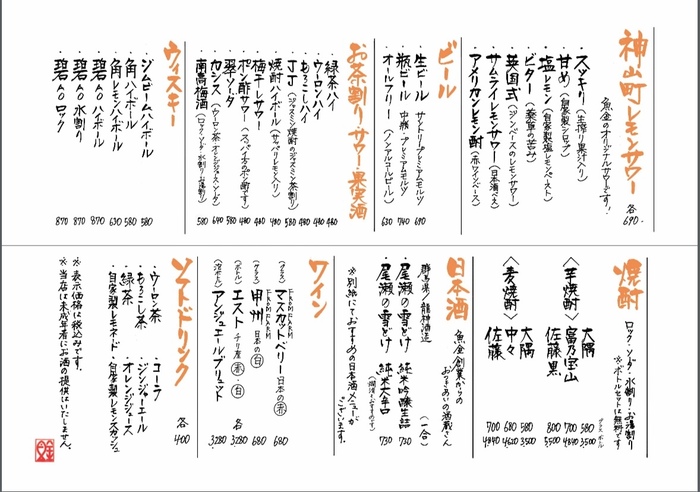 神山町レモンサワー 各690-
魚金のオリジナルサワーです!
・スッキリ(生搾り果汁入り)
・甘め(自家製シロップ)
・塩レモン(自家製塩レモンペースト)
・ビター(薬草の苦み)
・英国式(ジンベースのレモンサワー)
・サムライレモンサワー(日本酒ベース)
・アメリカンレモン酎(赤ワインベース)
ビール
・生ビール サントリープレミアムモルツ 690
・瓶ビール 中瓶・プレミアムモルツ 740
・オールフリー(ノンアルコールビール) 630
お茶割り・サワー・果実酒
・緑茶ハイ 480
・ウーロンハイ 480
・あろこしハイ 480
・JJ(ジャスミン焼酎のジャスミン茶割) 580
・焼酎ハイボール(サッパリレモン入り) 480
・梅干しサワー 480
・ポン酢サワー(スパイカのポン酢です) 480
・翠ソーダ 580
・カシス(ウーロン茶 オレンジジュース ソーダ) 640
・南高梅酒(ロック ソーダ 水割り お湯割) 580
ウィスキー
・ジムビームハイボール 580
・角ハイボール 580
・角レモンハイボール 630
・碧Ao ハイボール 870
・碧Ao 水割り 870
・碧Ao ロック 870
焼酎 ロック・ソーダ・水割り・お湯割り
※ボトルセットは無料です
グラス ボトル
〈芋焼酎〉大隅 580 3500
富乃宝山 700 4840
佐藤黒 800 5500
〈麦焼酎〉大隅 580 3500
中々 680 4620
佐藤 700 4840
日本酒 魚金創業からのおつきあいの酒蔵さん
群馬県/龍神酒造 (一合)
・尾瀬の雪どけ 純米吟醸生詰 730
・尾瀬の雪どけ 純米大辛口 730
(燗酒もおすすめです)
※別紙にておすすめの日本酒メニューがございます。
ワイン
(グラス) マスカットベリー 日本の赤 680
FROMFARM
(グラス) 甲州 日本の白 680
FROMFARM
(ボトル) エスト チリ産 赤・白 各3280
(泡ボトル) アンジュエールブリュット 3280
ソフトドリンク 各400
・ウーロン茶 ・コーラ
・あろこし茶 ・ジンジャーエール
・緑茶 ・オレンジジュース
・自家製レモネード ・自家製レモンスカッシュ
※表示価格は税込みです。
※当店は未成年者にお酒の提供はいたしません。